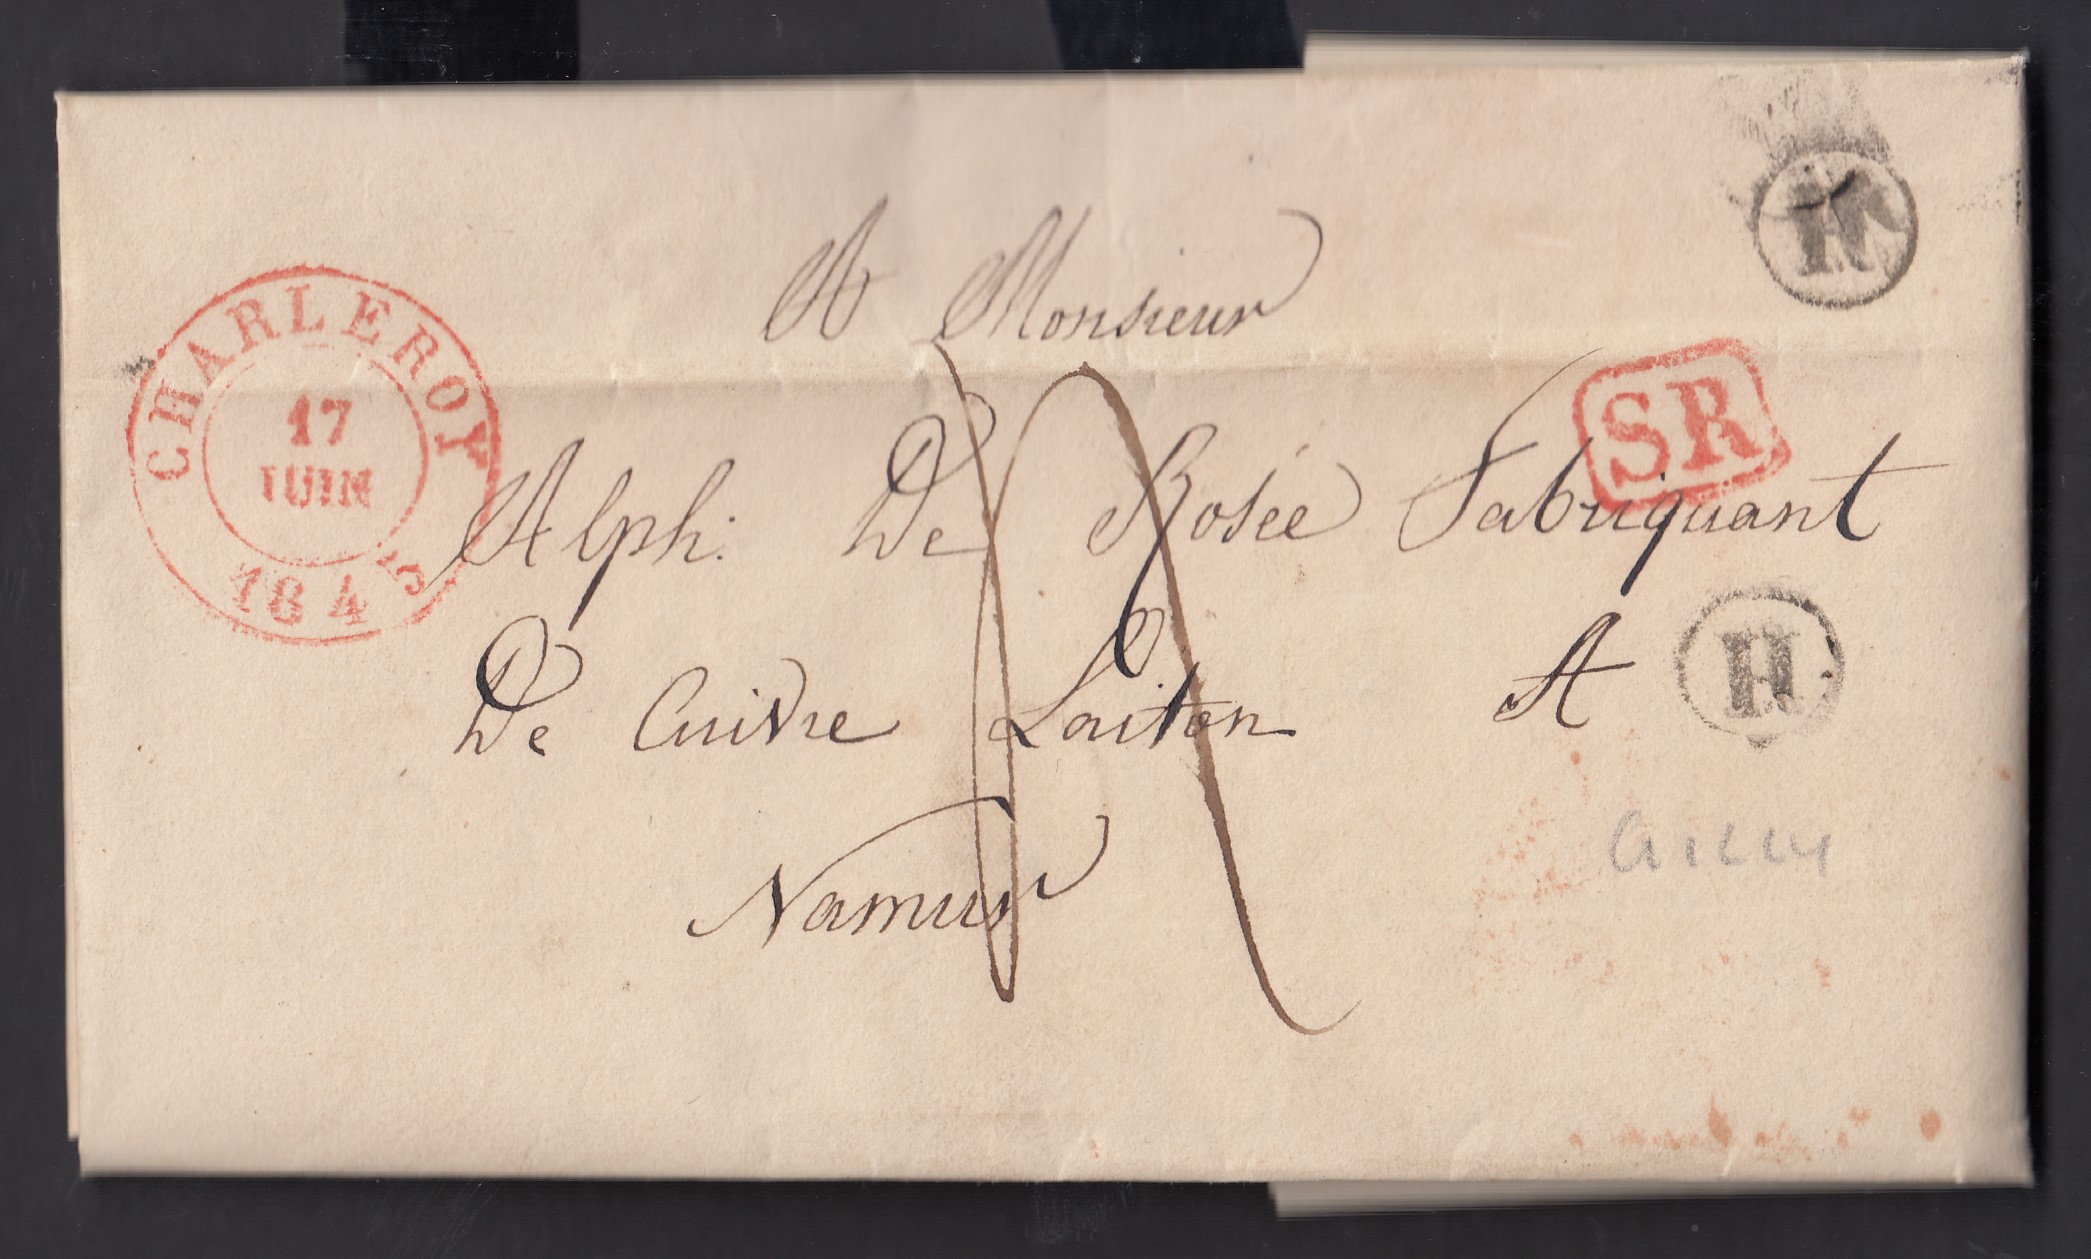 A Monsieur
Alph: De Rosée Fabriquant
De Cuivre Laiton A
Namur
CHARLEROY
17
JUIN
1845
SR
H
H
GILLY